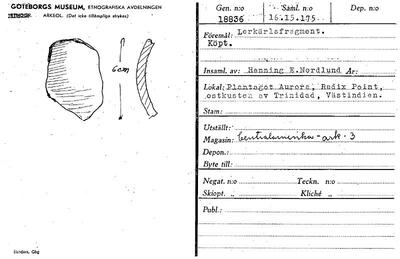 GÖTEBORGS MUSEUM, ETNOGRAFISKA AVDELNINGEN
ETNOGR. ARKEOL. (Det icke tillämpliga strykes)
6 cm
Gen. n:o Saml. n:o Dep. n:o
18836 16.15.175
Föremål: Lerkärlsfragment.
Köpt.
Insaml. av: Henning E.Nordlund År:
Lokal: Plantaget Aurora, Radix Point,
ostkusten av Trinidad, Västindien.
Stam:
Utställt:
Magasin: Centralamerika - ark. 3
Depon.:
Byte till:
Negat. n:o Teckn. n:o
Skiopt. „ Kliché „
Publ.:
Gbg